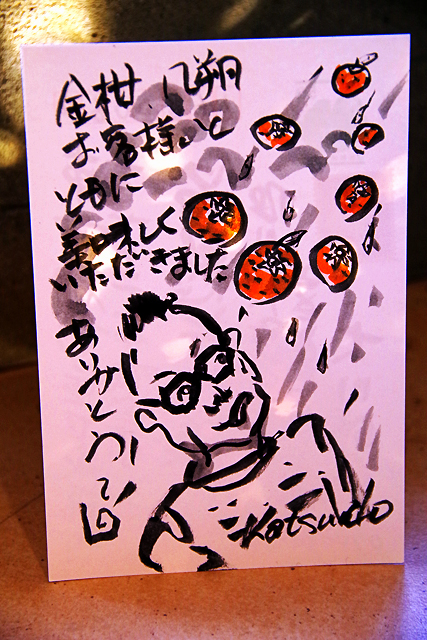 金柑、八朔
お客様と
ともに
美味しく
いただきました
ありがとう
Katsundo